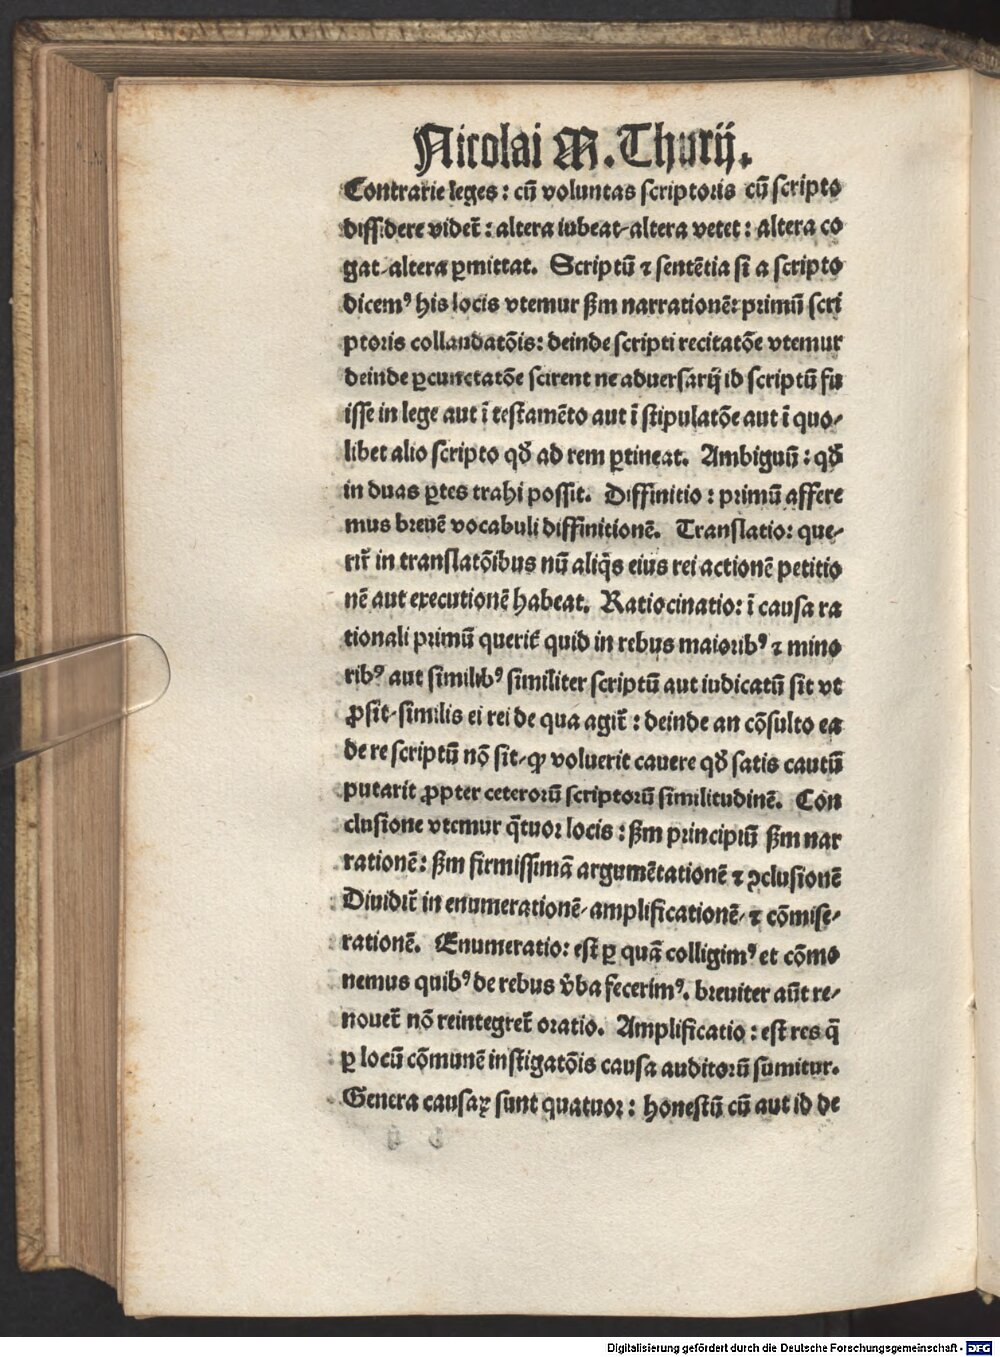 Nicolai M. Thurij.
Contrarie leges: cū voluntas scriptoris cū scripto
dissidere videt᷑: altera iubeat altera vetet: altera co
gat altera ꝑmittat. Scriptū ⁊ sentētia si a scripto
dicemꝰ his locis vtemur ẜm narrationē: primū scri
ptoris collaudatōis: deinde scripti recitatōe vtemur
deinde ꝑcunctatōe scirent ne aduersarij id scriptū fu
isse in lege aut ī testamēto aut ī stipulatōe aut ī quo⸗
libet alio scripto qđ ad rem ꝑtineat. Ambiguū: qđ
in duas ꝑtes trahi possit. Diffinitio: primū affere
mus breuē vocabuli diffinitionē. Translatio: que⸗
rit᷑ in translatōibus nū aliq̄s eius rei actionē petitio
nē aut executionē habeat. Ratiocinatio: ī causa ra
tionali primū querit᷑ quid in rebus maioribꝰ ⁊ mino
ribꝰ aut similibꝰ similiter scriptū aut iudicatū sit vt
ꝓsit similis ei rei de qua agit᷑: deinde an cōsulto ea
de re scriptū nō sit ꝙ voluerit cauere qđ satis cautū
putarit ꝓpter ceterorū scriptorū similitudinē. Con
clusione vtemur q̄tuor locis: ẜm principiū ẜm nar
rationē: ẜm firmissimā argumētationē ⁊ ꝯclusionē
Diuidit᷑ in enumerationē amplificationē ⁊ cōmise⸗
rationē. Enumeratio: est ꝑ quā colligimꝰ et cōmo
nemus quibꝰ de rebus v̄ba fecerimꝰ. breuiter aūt re⸗
nouet᷑ nō reintegret᷑ oratio. Amplificatio: est res q̄
ꝑ locū cōmunē instigatōis causa auditorū sumitur.
Genera causaꝝ sunt quatuor: honestū cū aut id de
Digitalisierung gefördert durch die Deutsche Forschungsgemeinschaft - DFG